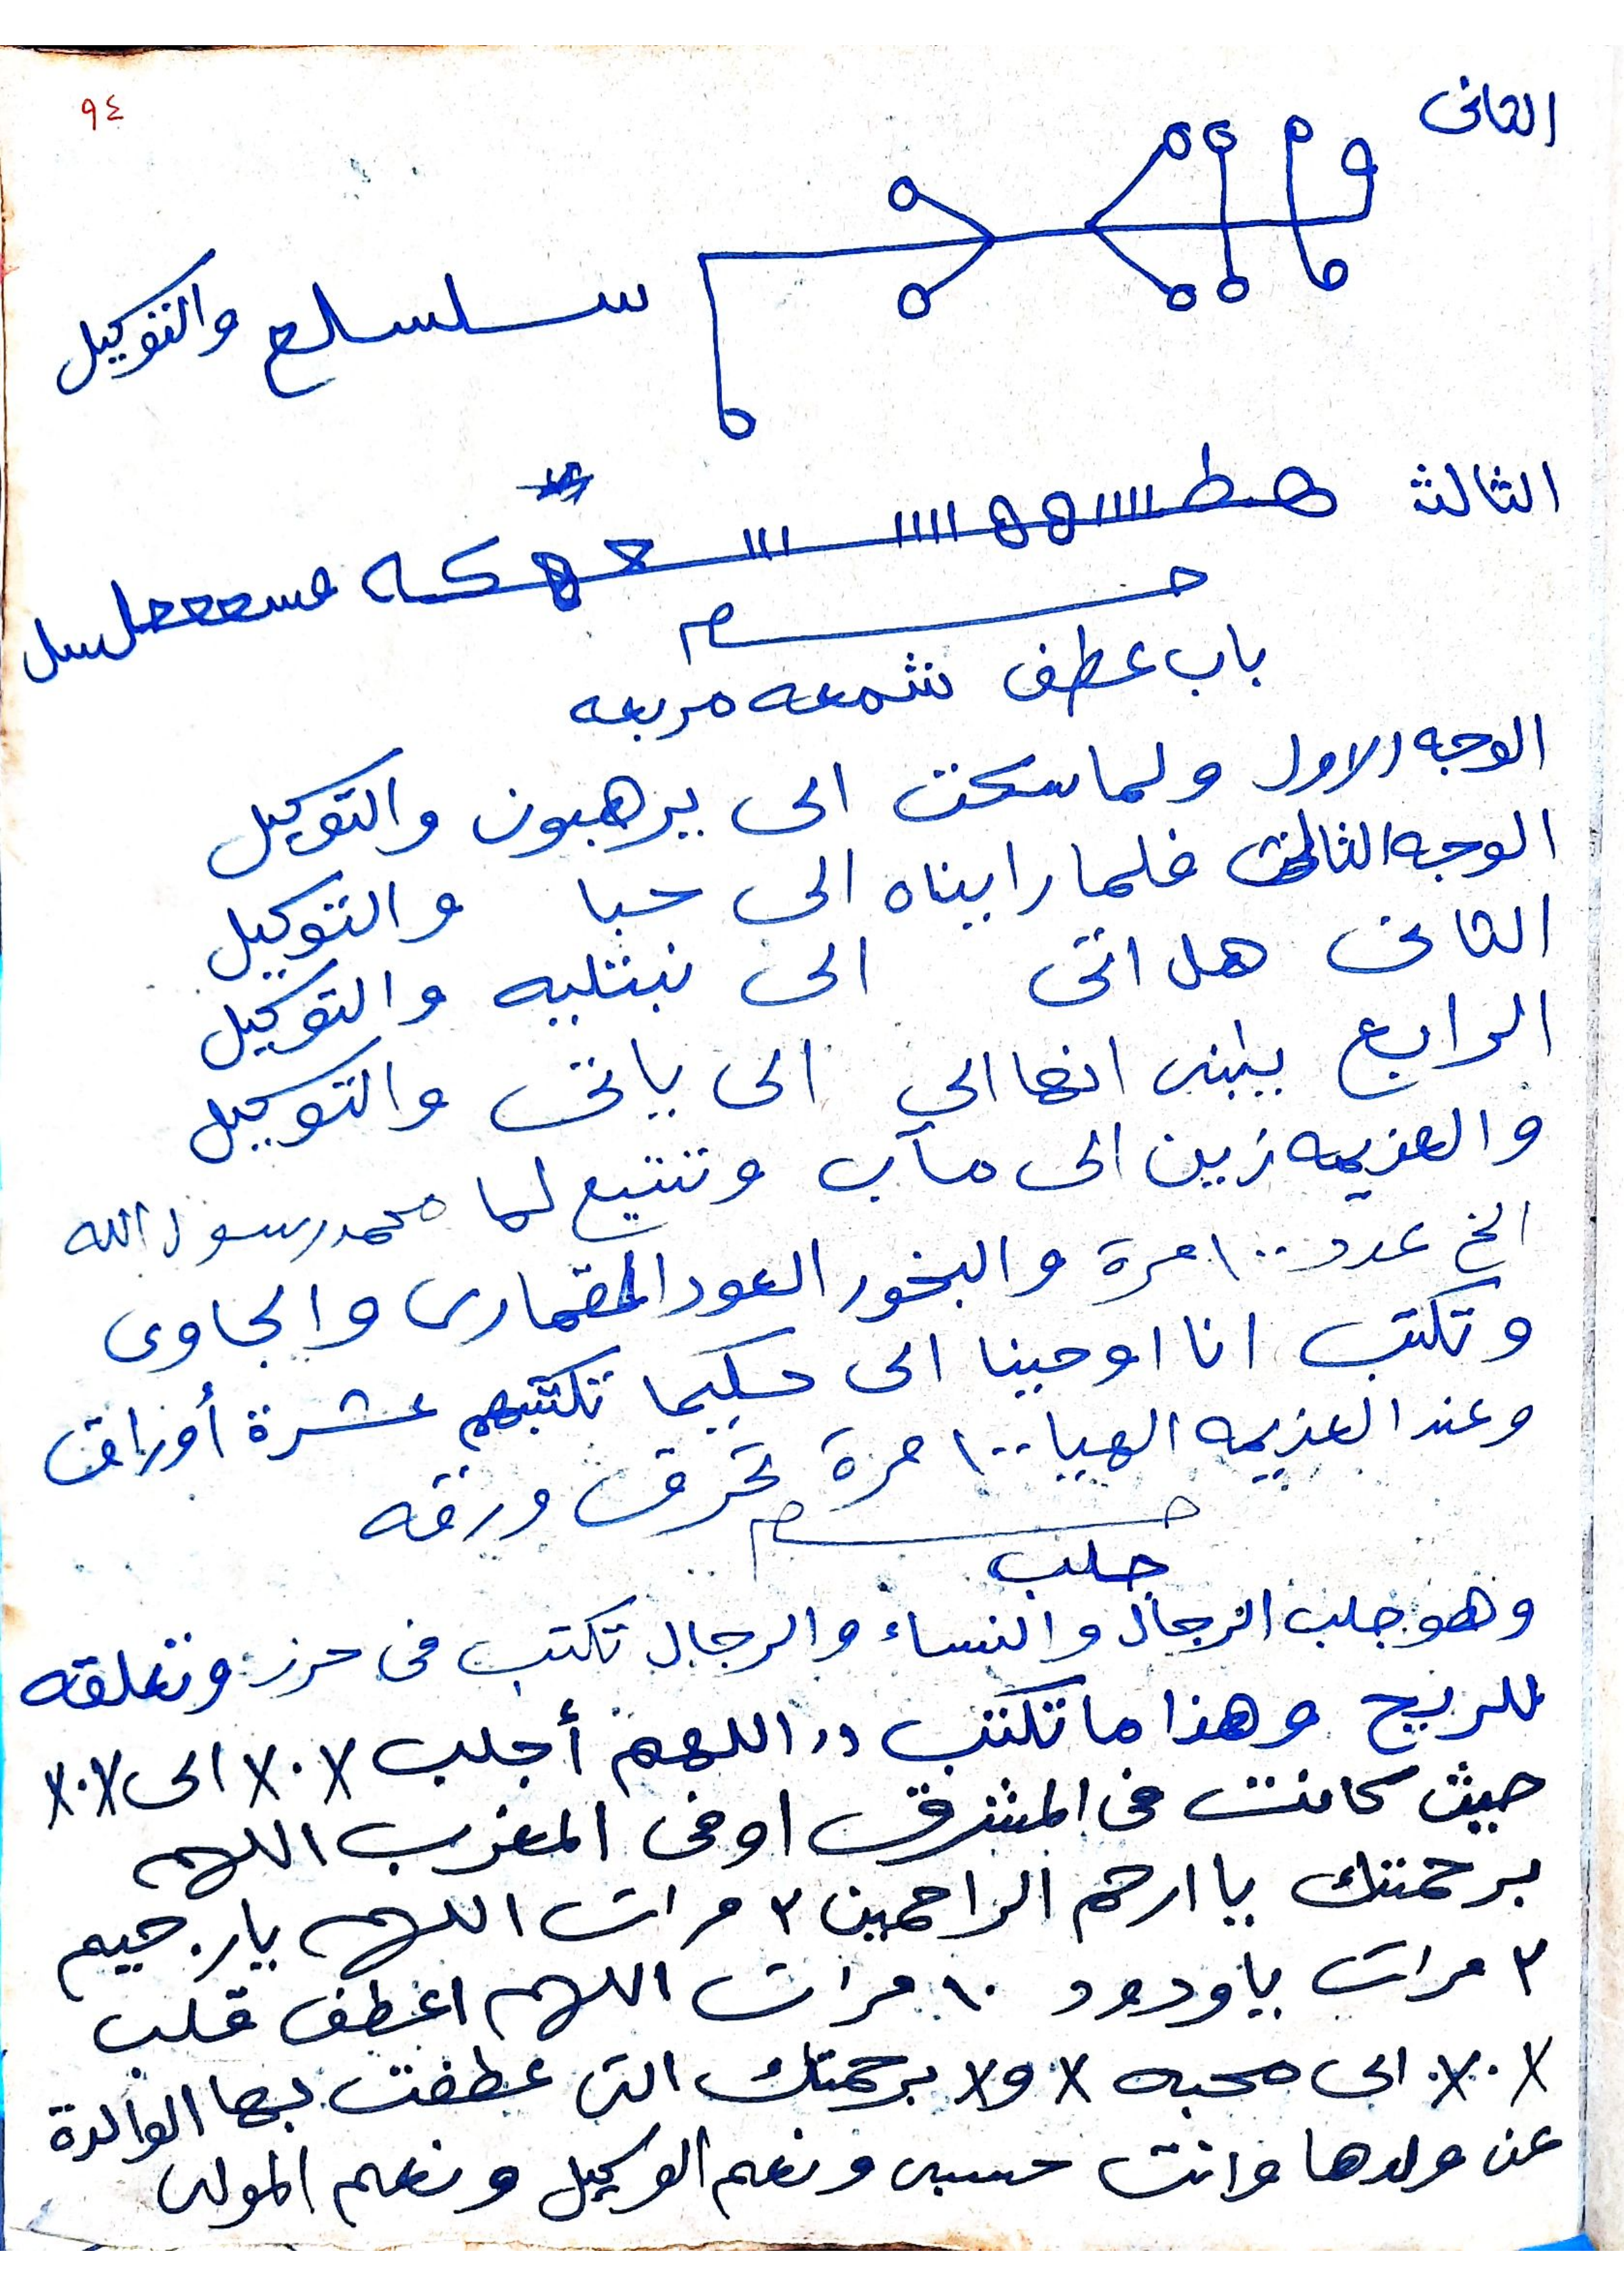 ٩٤
الثانى
سلسلع والتوكيل
الثالث
باب عطف شمعه مربعه
الوجه الاول ولما سكت الى يرهبون والتوكيل
الوجه الثالث فلما راينه الى حبا والتوكيل
الثانى هل اتى الى نبتليه والتوكيل
الرابع يبنى انها الى ياتى والتوكيل
والعزيمه زين الى مآب وتتبع لها محمد رسول الله
الخ عدد ١٠٠ مرة والبخور العود القمارى والجاوى
وتكتب انا اوحينا الى حكيما تكتبهم عشرة أوراق
وعند العزيمه الهيا ١٠٠ مرة تحرق ورقه
جلب
وهو جلب الرجال والنساء والرجال تكتب فى حرز وتعلقه
للريح وهذا ما تكتب ,, اللهم أجلب ٧٠٧ الى ٧٠٧
حيث كانت فى المشرق او فى المغرب اللهم
برحمتك يا ارحم الراحمين ٣ مرات اللهم يا رحيم
٣ مرات يا ودود ١٠ مرات اللهم اعطف قلب
الى محبه برحمتك التى عطفت بها الوالدة
عن ولدها وانت حسبى ونعم الوكيل ونعم المولى